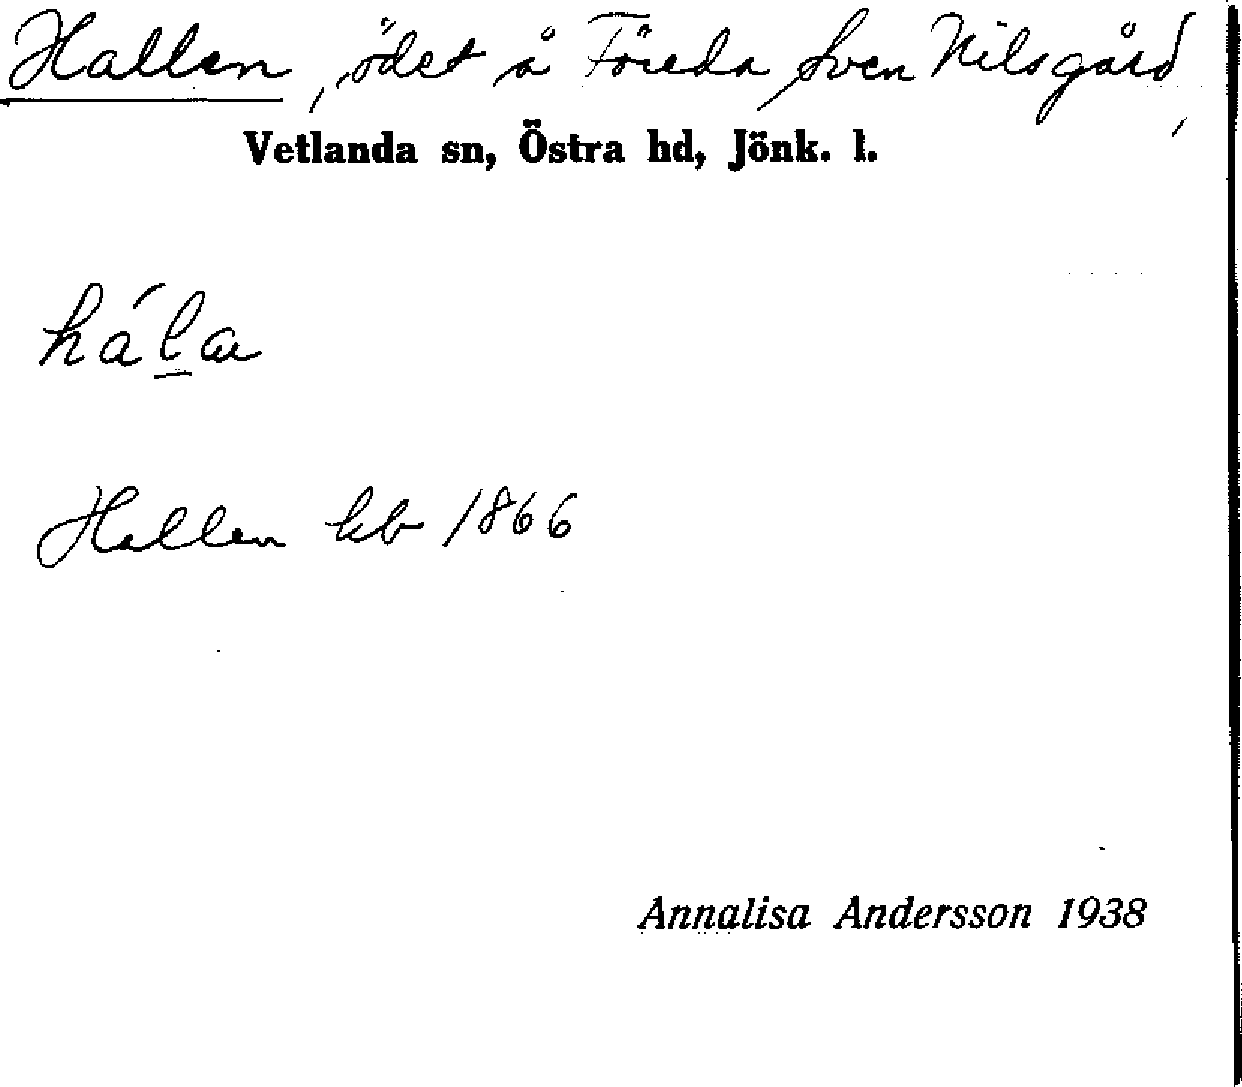 Hallen, ödet å Föreda Sven Nilsgård,
Vetlanda sn, Östra hd, Jönk. l.
Hallen hb 1866
Annalisa Andersson 1938